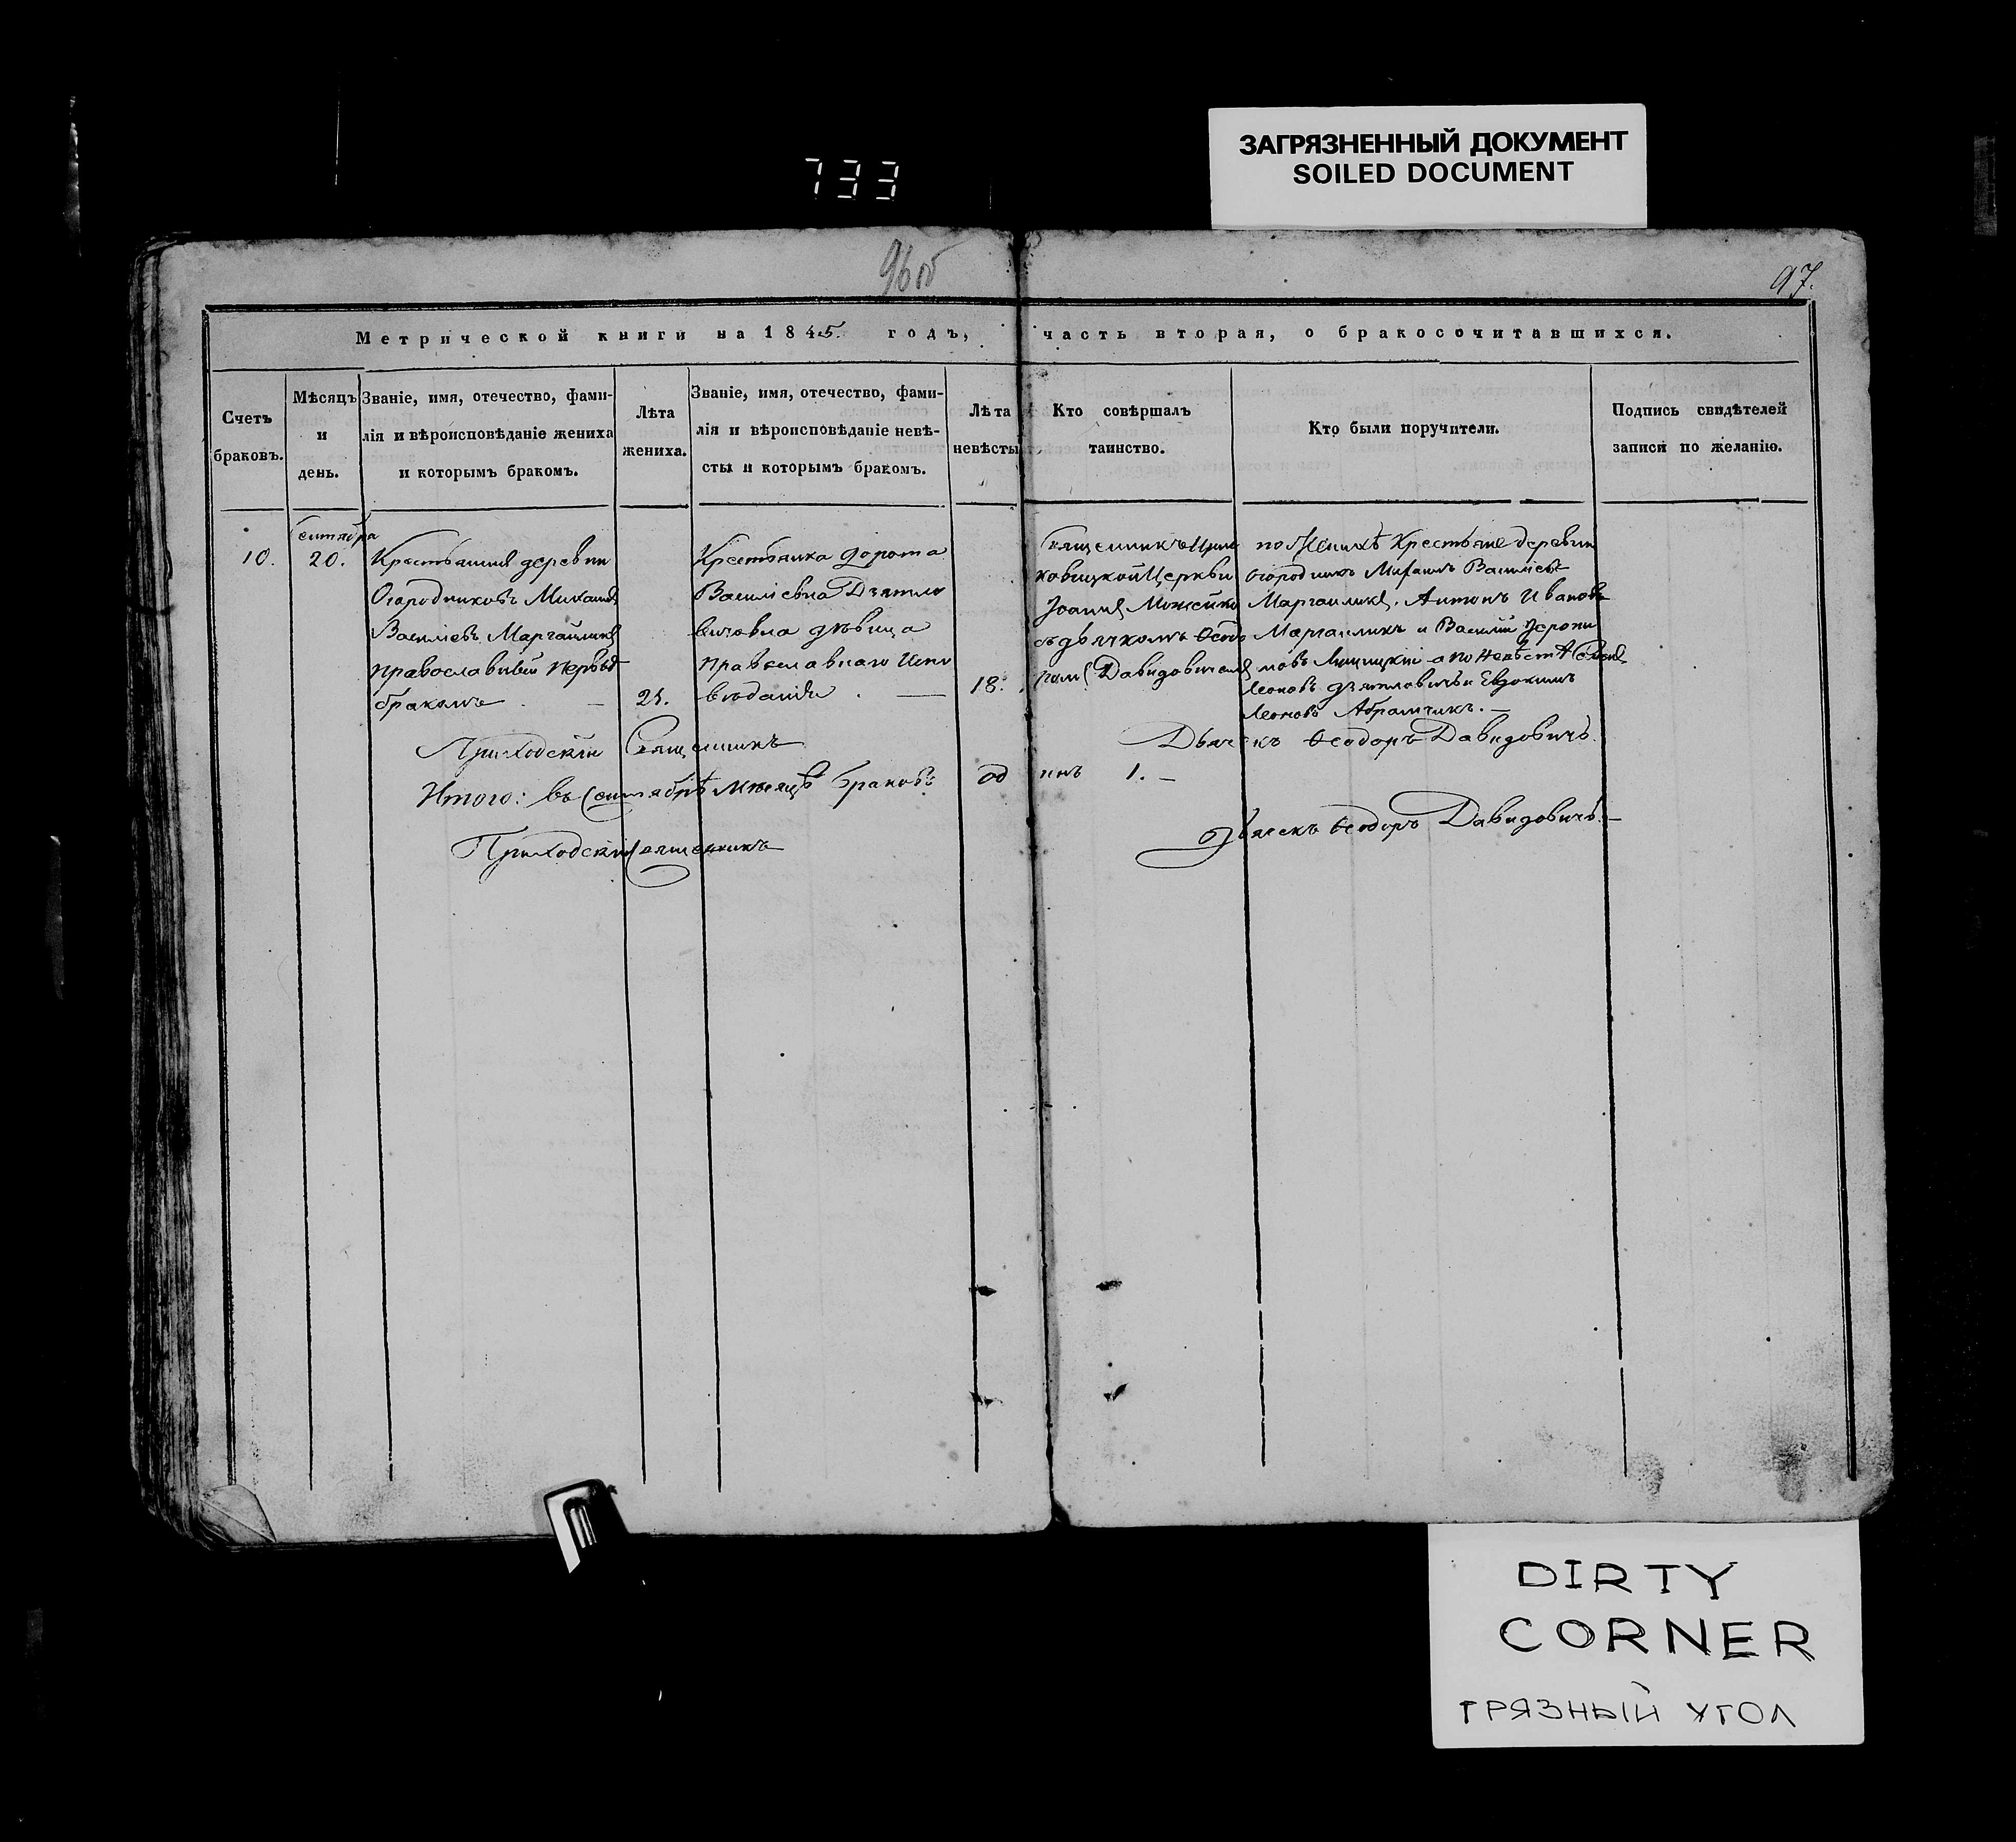 733
ЗАГРЯЗНЕННЫЙ ДОКУМЕНТ
SOILED DOCUMENT
96об
97.
Метрической книги на 1845. годъ, часть вторая, о бракосочитавшихся.
Счетъ
браковъ.
Мѣсяцъ
и
день.
Званіе, имя, отечество, фами-
лія и вѣроисповѣданіе жениха
и которымъ бракомъ.
Лѣта
жениха.
Званіе, имя, отечество, фами-
лія и вѣроисповѣданіе невѣ-
сты и которымъ бракомъ.
Лѣта
невѣсты
Кто совѣршалъ
таинство.
Кто были поручители.
Подпись свидѣтелей
записи по желанію.
10.
Сентября
20.
Крестьянинъ деревни
Огородниковъ Михаилъ
Васильевъ Маргайликъ
православный первымъ
бракомъ
25.
Крестьянка Дорота
Васильевна Дзятло
вичовна дѣвица
Православнаго Испо
вѣданія
18.
Священникъ
ковицкой Церкви
Іоаннъ Можейко
съ дьячкомъ Ѳеодо
ромъ Давидовичемъ
по Женихѣ Крестьяне деревни
Огородникъ Михаилъ Васильевъ
Маргаиликъ. Антонъ Ивановъ
Маргаиликъ и Василій
мовъ а по Невѣстѣ
Леоновъ Дзятловичъ и Евдокимъ
Леоновъ Абрамчикъ.
Приходскій Священникъ
Дьячекъ Ѳеодоръ Давидовичъ.
Итого: въ Сентябрѣ мѣсяцѣ браковъ одинъ 1.
Приходскій Священникъ
Дьячекъ Ѳеодоръ Давидовичъ.
DIRTY
CORNER
ГРЯЗНЫЙ УГОЛ